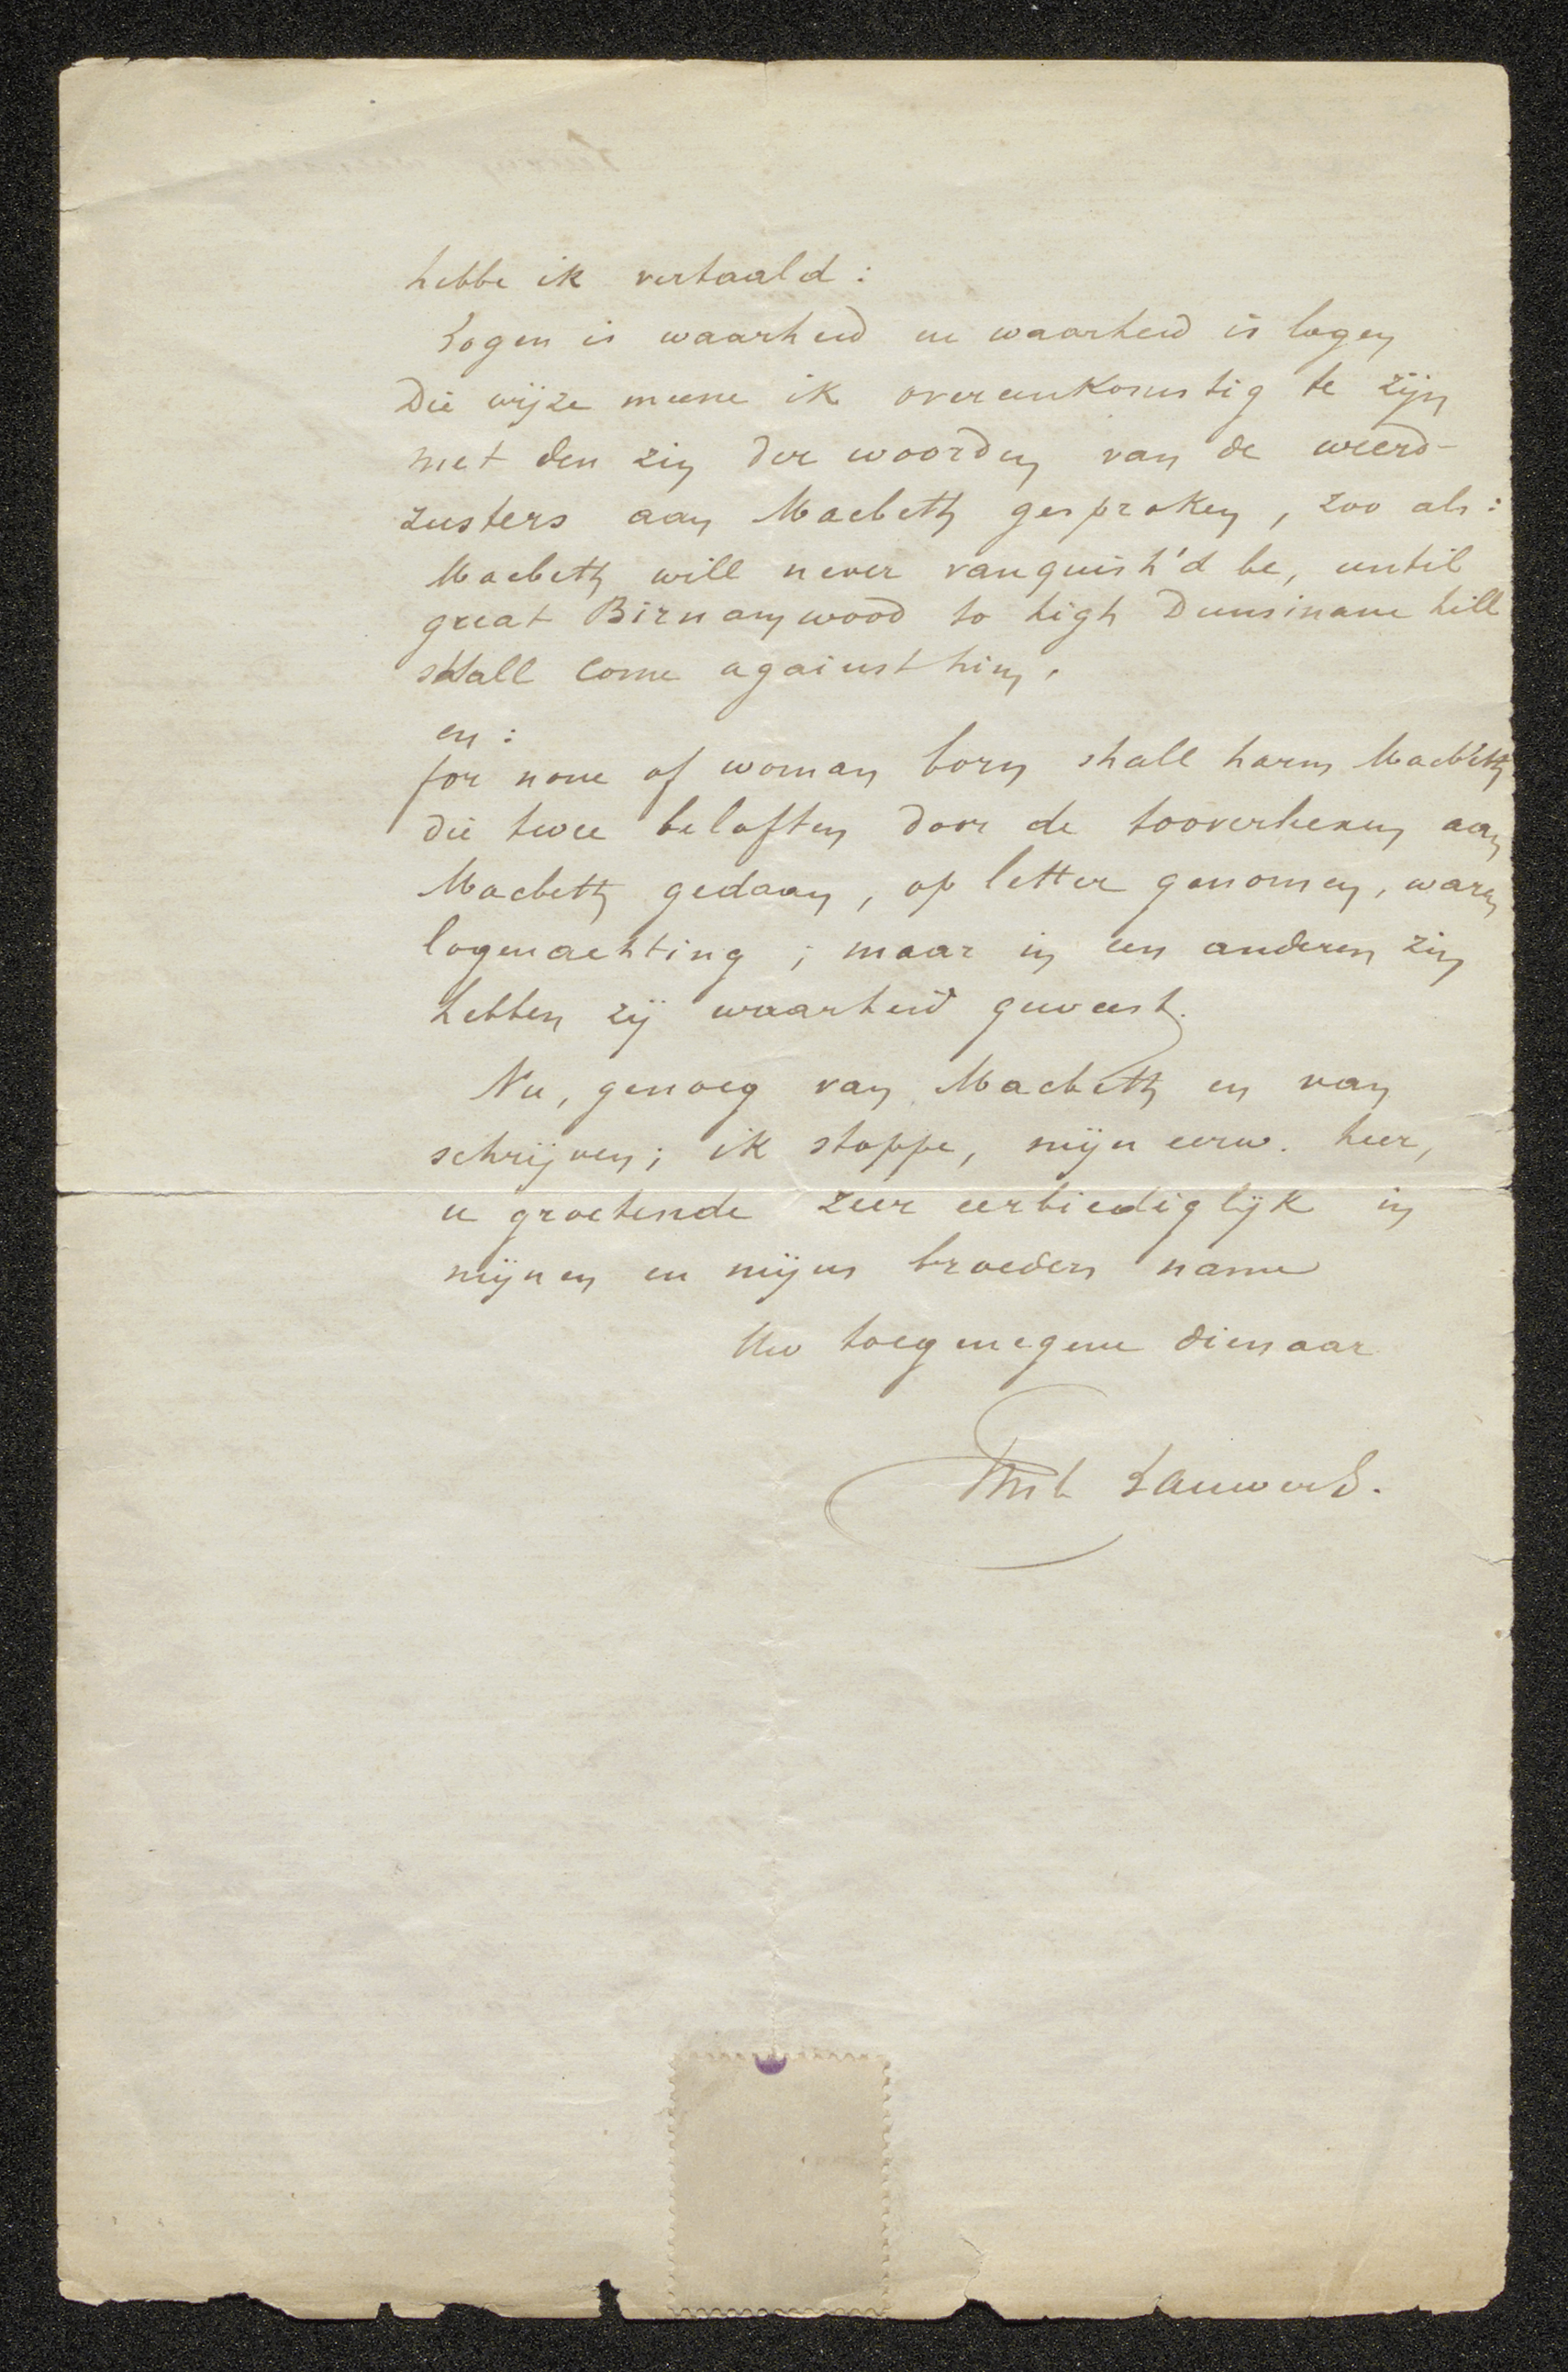 hebbe ik vertaald :
Logen is waarheid en waarheid is logen
Die wijze meene ik overeenkomstig te zijn
met den zin der woorden van de weerd-
zusters aan Macbeth gesproken, zoo als :
Macbeth will never vanquish'd be, until
great Birnam wood to high Dunsinane hill
shall come against him,
en :
for none of woman born shall harm Macbeth
die twee beloften door de tooverhexen aan
Macbeth gedaan, op letter genomen, waren
logenachting ; maar in een anderen zin
hebben zij waarheid geweest.
Nu, genoeg van Macbeth en van
schrijven; ik stoppe, mijn eerw. heer,
u groetende zeer eerbiediglijk in
mijnen en mijns broeders name
Uw toegenegene dienaar
Lauwers.